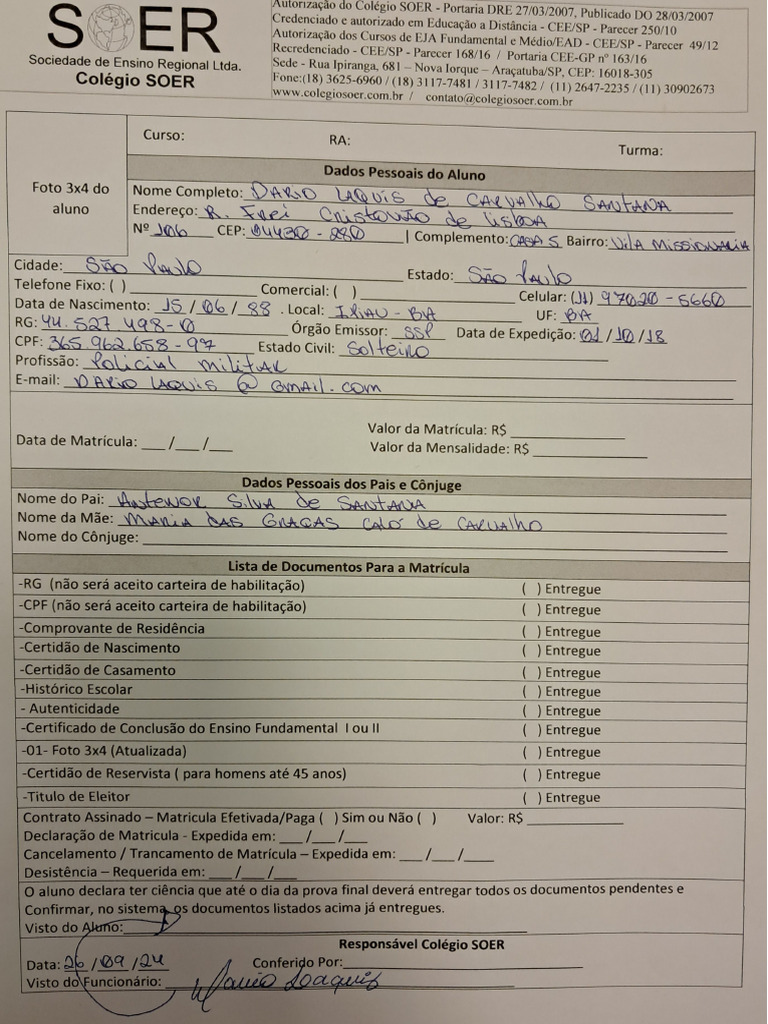 SOER
Sociedade de Ensino Regional Ltda.
Colégio SOER
Autorização do Colégio SOER - Portaria DRE 27/03/2007, Publicado DO 28/03/2007
Credenciado e autorizado em Educação a Distância - CEE/SP - Parecer 250/10
Autorização dos Cursos de EJA Fundamental e Médio/EAD - CEE/SP - Parecer 49/12
Recredenciado - CEE/SP - Parecer 168/16 / Portaria CEE-GP nº 163/16
Sede - Rua Ipiranga, 681 – Nova Iorque – Araçatuba/SP, CEP: 16018-305
Fone:(18) 3625-6960 / (18) 3117-7481 / 3117-7482 / (11) 2647-2235 / (11) 30902673
www.colegiosoer.com.br / contato@colegiosoer.com.br
Foto 3x4 do
aluno
Curso: RA: Turma:
Dados Pessoais do Aluno
Nome Completo: DARIO LAQUIS de CARVALHO SANTANA
Endereço: R. Frei Cristovão de Lisboa
Nº 106 CEP: 04430-280 | Complemento: CASA 5 Bairro: Vila Missionaria
Cidade: São Paulo Estado: São Paulo
Telefone Fixo: ( ) Comercial: ( ) Celular: (11) 97020-5660
Data de Nascimento: 15/06/88 . Local: IPIAU - BA UF: BA
RG: 44.527.498-0 Órgão Emissor: SSP Data de Expedição: 01/10/18
CPF: 365.962.658-97 Estado Civil: Solteiro
Profissão: Policial militar
E-mail: DARIO LAQUIS @ GMAIL.COM
Data de Matrícula: ___/___/___ Valor da Matrícula: R$
Valor da Mensalidade: R$
Dados Pessoais dos Pais e Cônjuge
Nome do Pai: Antenor Silva de SANTANA
Nome da Mãe: MARIA DAS GRAÇAS CALÓ de CARVALHO
Nome do Cônjuge:
Lista de Documentos Para a Matrícula
-RG (não será aceito carteira de habilitação) ( ) Entregue
-CPF (não será aceito carteira de habilitação) ( ) Entregue
-Comprovante de Residência ( ) Entregue
-Certidão de Nascimento ( ) Entregue
-Certidão de Casamento ( ) Entregue
-Histórico Escolar ( ) Entregue
- Autenticidade ( ) Entregue
-Certificado de Conclusão do Ensino Fundamental I ou II ( ) Entregue
-01- Foto 3x4 (Atualizada) ( ) Entregue
-Certidão de Reservista ( para homens até 45 anos) ( ) Entregue
-Titulo de Eleitor ( ) Entregue
Contrato Assinado – Matricula Efetivada/Paga ( ) Sim ou Não ( ) Valor: R$
Declaração de Matricula - Expedida em: ___/___/___
Cancelamento / Trancamento de Matrícula – Expedida em: ___/___/____
Desistência – Requerida em: ___/___/___
O aluno declara ter ciência que até o dia da prova final deverá entregar todos os documentos pendentes e
Confirmar, no sistema, os documentos listados acima já entregues.
Visto do Aluno:
Responsável Colégio SOER
Data: 26/09/24 Conferido Por:
Visto do Funcionário: